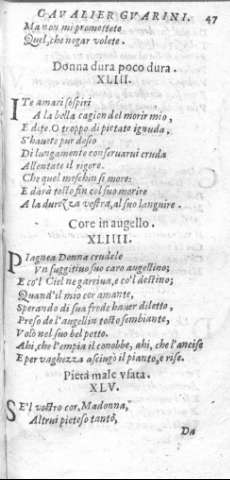 CAVALIER GVARINI. 47
Ma non mi promettete
Quel, che negar volete.
Donna dura poco dura.
XLIII.
ITe amari sospiri
A la bella cagion del morir mio,
E dite. O troppo di pietate ignuda,
S'hauete pur desio
Di lungamente conseruarui cruda
Allentate il rigore.
Che quel meschin si more:
E darà tosto fin col suo morire
A la durezza vostra, al suo languire.
Core in augello.
XLIIII.
PIagnea Donna crudele
Vn fuggitiuo suo caro augellino;
E co'l Ciel ne garriua, e co'l destino;
Quand'il mio cor amante,
Sperando di sua frode hauer diletto,
Preso de l'augellin tosto sembiante,
Volò nel suo bel petto.
Ahi, che l'empia il conobbe, ahi, che l'ancise
E per vaghezza asciugò il pianto, e rise.
Pietà male vsata.
XLV.
SE'l vostro cor, Madonna,
Altrui pietoso tanto,
Da